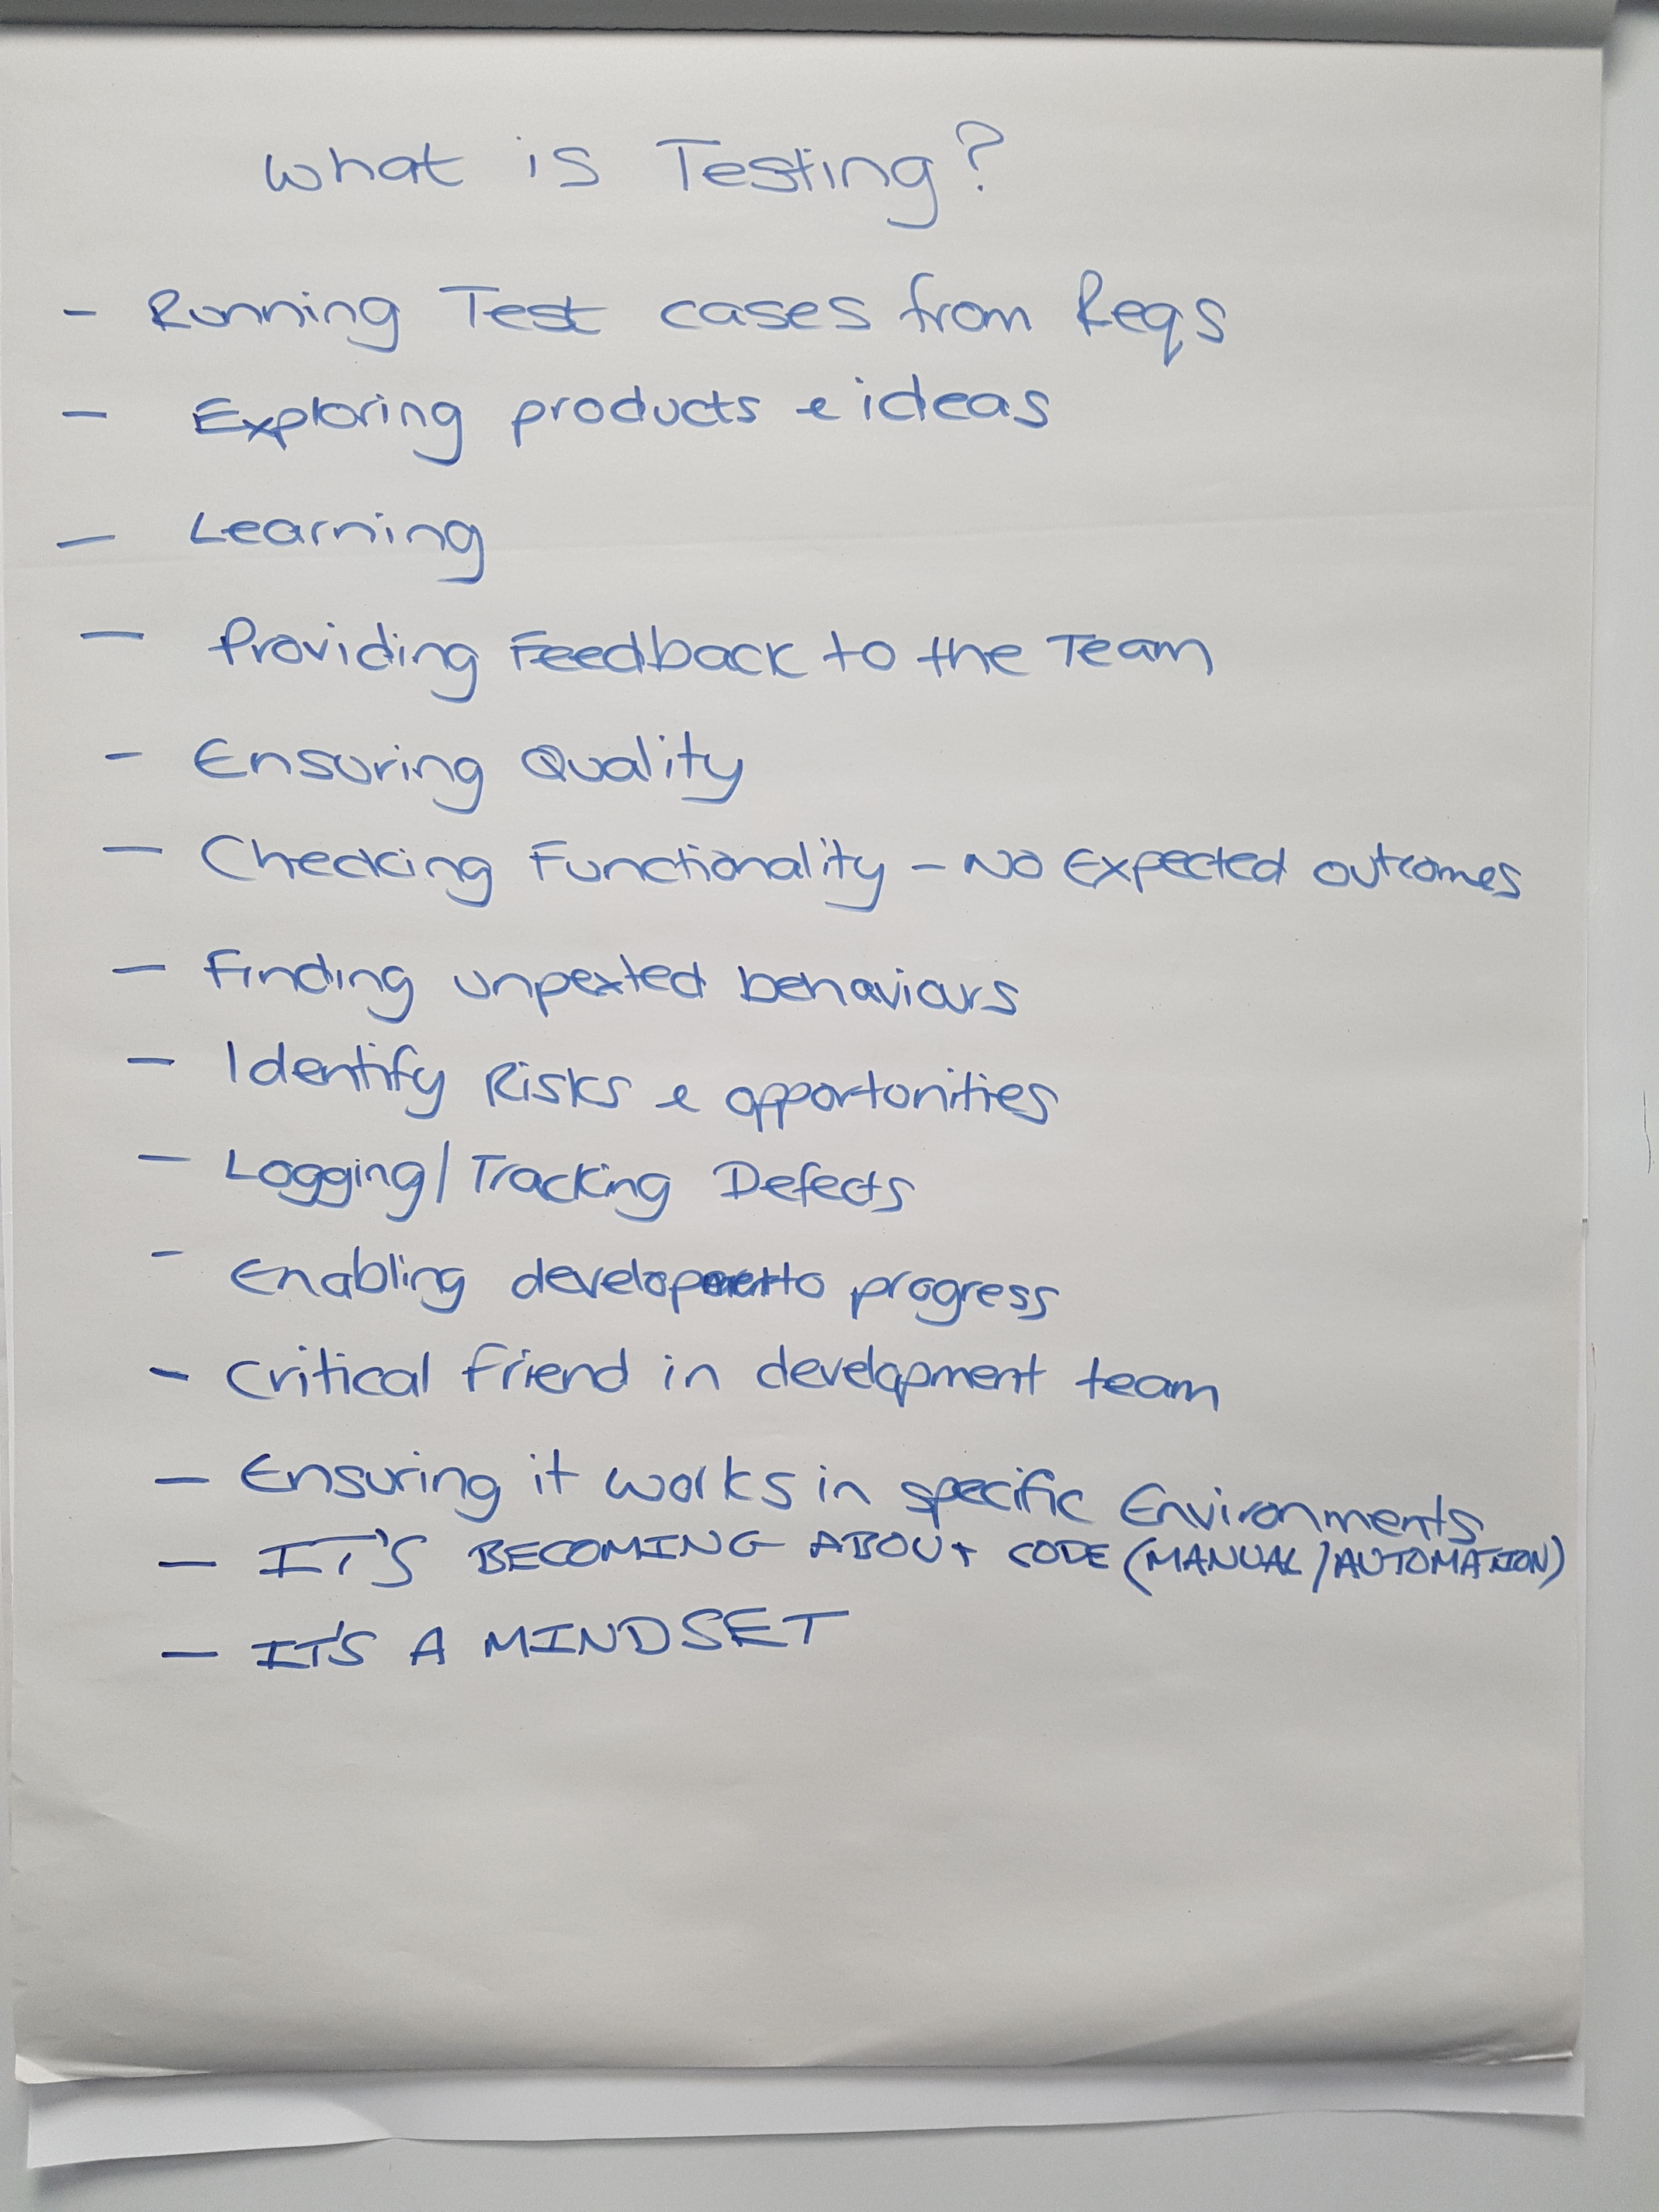 What is Testing?
- Running Test cases from Reqs
- Exploring products & ideas
- Learning
- Providing Feedback to the Team
- Ensuring Quality
- Checking Functionality - No Expected outcomes
- Finding unpexted behaviours
- Identify Risks & opportunities
- Logging/Tracking Defects
- Enabling development to progress
- Critical friend in development team
- Ensuring it works in specific Environments
- IT'S BECOMING ABOUT CODE (MANUAL/AUTOMATION)
- IT'S A MINDSET